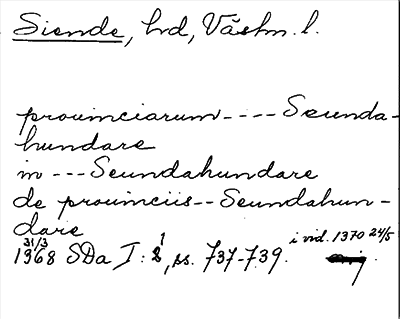 Siende, hd, Västm. l.
prouinciarum - - - - Seunda-
hundare
in - - - Seundahundare
de prouinciis - - Seundahun-
dare
31/3 1368 SDa I: 1, ss. 737-739. i vid. 1370 24/5